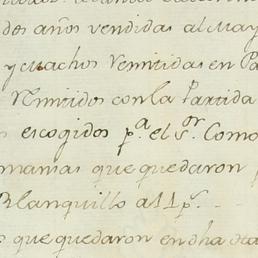 dos años vendidas al May
y Machos Remitidas en Pa
Remitidos con la Partida
escogidos p.ª el S.r Como
manias que quedaron
Blanquillo a 11 p.s
s que quedaron en dha